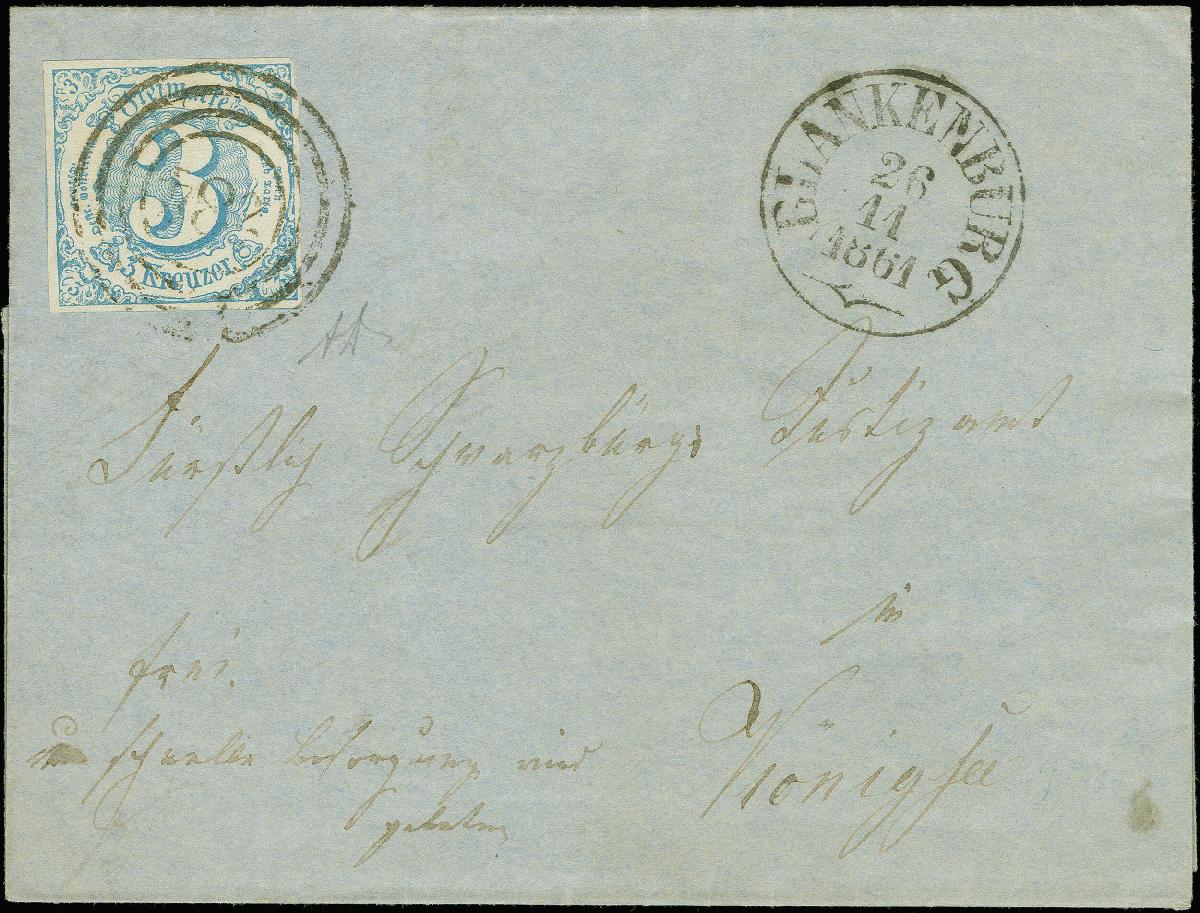 Freimarke
3
3 Kreuzer.
BLANKENBURG
26
11
1861
Fürstlich Schwarzburg. Justizamt
in
frei.
Königsee
um schnelle Besorgung wird
gebeten